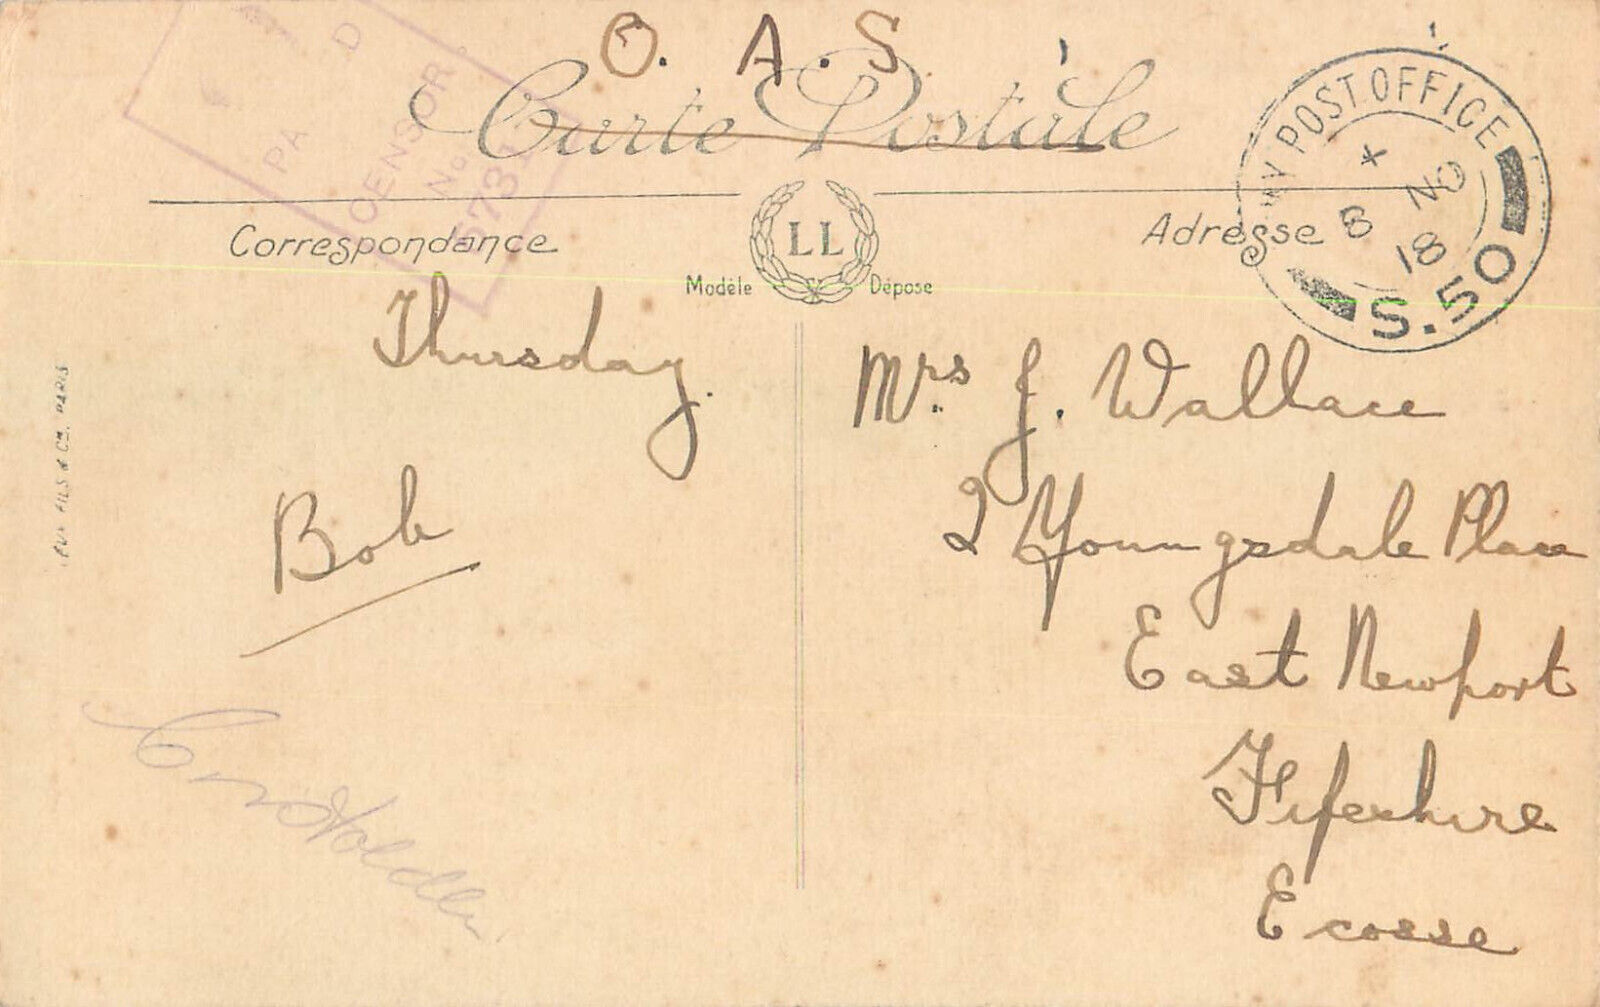 O. A. S.
Carte Postale
PA D
CENSOR
No
5731
POST OFFICE
X
8 NO
18
S.50
Correspondance
LL
Modèle Déposé
Adresse
Thursday.
Bob
Mrs J. Wallace
2 Youngsdale Place
East Newport
Fifeshire
Ecosse
FILS & Cie. PARIS